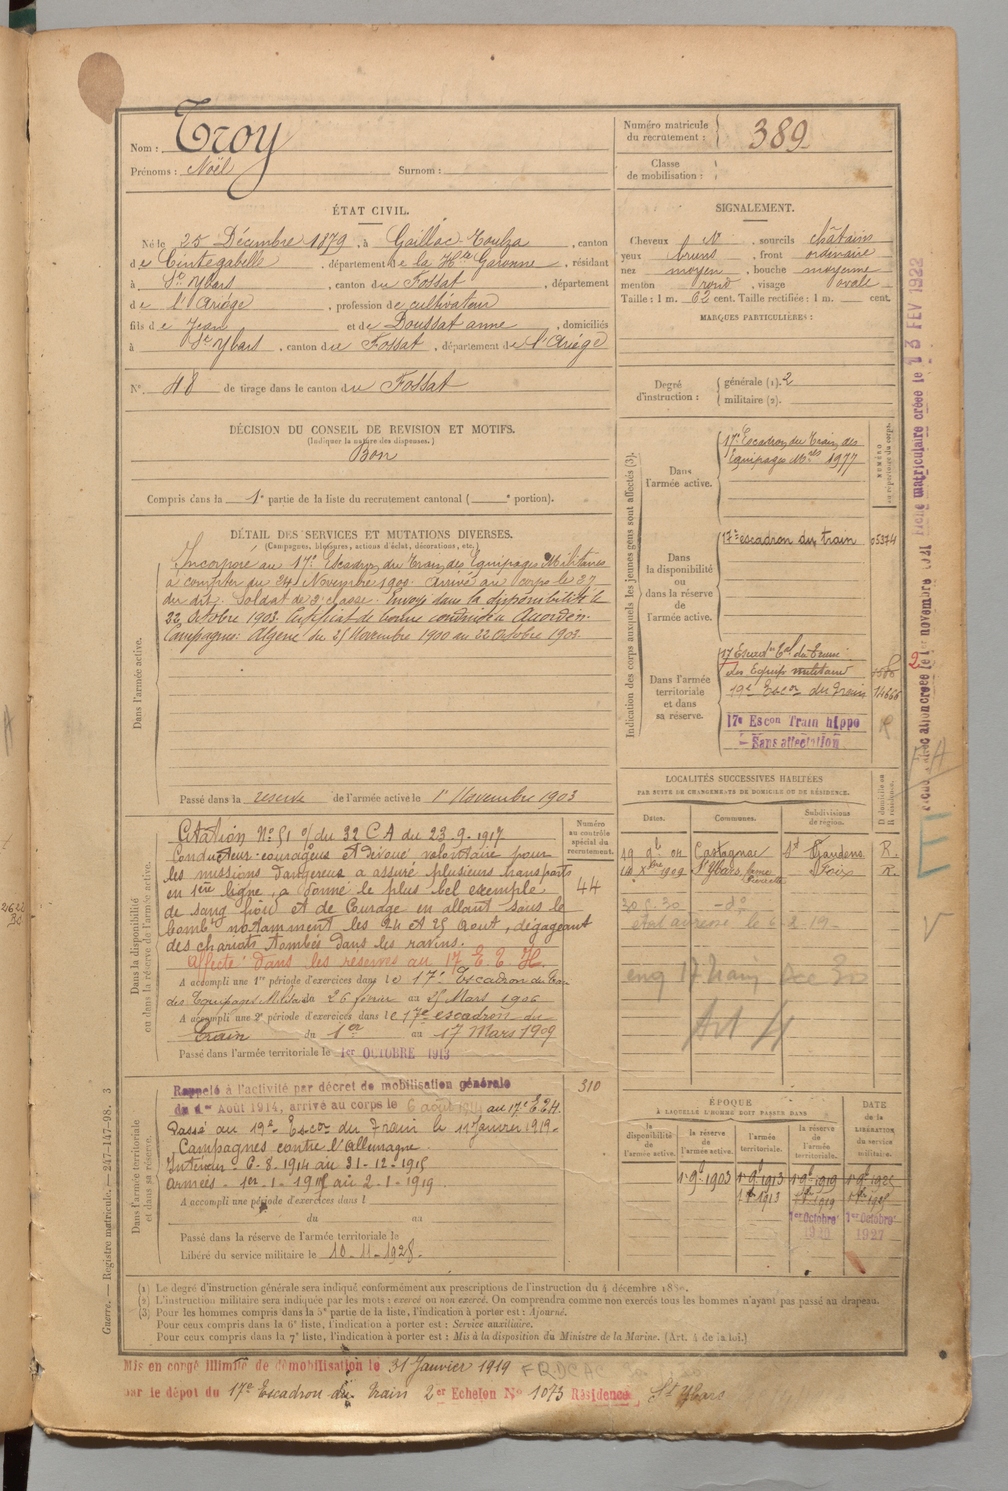 Nom : Troy
Prénoms : Noël Surnom :
Numéro matricule
du recrutement : 389
Classe
de mobilisation :
ÉTAT CIVIL.
Né le 25 Décembre 1879, à Gaillac-Toulza, canton
de Cintegabelle, département de la Hte Garonne, résidant
à St Ybars, canton du Fossat, département
de l'Ariège, profession de cultivateur
fils de Jean et de Doussat anne, domiciliés
à St Ybars, canton du Fossat, département de l'Ariège
N° 48 de tirage dans le canton du Fossat
SIGNALEMENT.
Cheveux N, sourcils châtains
yeux bruns, front ordinaire
nez moyen, bouche moyenne
menton rond, visage ovale
Taille : 1 m. 62 cent. Taille rectifiée : 1 m. cent.
MARQUES PARTICULIÈRES :
Degré
d'instruction :
générale (1). 2
militaire (2).
DÉCISION DU CONSEIL DE REVISION ET MOTIFS.
(Indiquer la nature des dispenses.)
Bon
Compris dans la 1e partie de la liste du recrutement cantonal ( e portion).
DÉTAIL DES SERVICES ET MUTATIONS DIVERSES.
(Campagnes, blessures, actions d'éclat, décorations, etc.)
Dans l'armée active.
Incorporé au 17e Escadron du Train des Equipages Militaires
à compter du 24 Novembre 1900. Arrivé au corps le 27
du dit. Soldat de 2e classe. Envoyé dans la disponibilité le
22 Octobre 1903. Certificat de bonne conduite Accordé.
Campagnes: Algérie du 25 Novembre 1900 au 22 Octobre 1903.
Passé dans la réserve de l'armée active le 1er Novembre 1903
Indication des corps auxquels les jeunes gens sont affectés (3).
NUMÉRO
au répertoire du corps.
Dans
l'armée active.
17e Escadron du Train des
Equipages Mres 1977
Dans
la disponibilité
ou
dans la réserve
de
l'armée active.
17e escadron du train 05374
Dans l'armée
territoriale
et dans
sa réserve.
17 Escadn Eal du Train
des Equip militaire
19e Escon du Train 14666
17e Escon Train hippo R
- Sans affectation
Fiche matriculaire créée le 13 FEV 1922
LOCALITÉS SUCCESSIVES HABITÉES
PAR SUITE DE CHANGEMENTS DE DOMICILE OU DE RÉSIDENCE.
Dates. Communes. Subdivisions
de région.
D domicile ou
R résidence.
19 04 Castagnac St Gaudens R.
14 Xbre 1909 St Ybars Foix R.
30.5.30 -do-
Art 4
Dans la disponibilité
ou dans la réserve de l'armée active.
Numéro
au contrôle
spécial du
recrutement.
44
Citation N° 51 du 32 CA du 23.9.1917
Conducteur courageux et dévoué volontaire pour
les missions dangereuses a assuré plusieurs transports
en 1ère ligne, a donné le plus bel exemple
de sang froid et de Courage en allant sous le
bombt notamment les 24 et 25 Aout, dégageant
des chariots tombés dans les ravins.
Affecté dans les réserves au 17 E. T. H.
A accompli une 1re période d'exercices dans le 17e Escadron du Train
des Equipages Militaires du 26 février au 25 Mars 1906
A accompli une 2e période d'exercices dans le 17e escadron du
Train du 1er au 17 Mars 1909
Passé dans l'armée territoriale le 1er OCTOBRE 1913
Dans l'armée territoriale
et dans sa réserve.
310
Rappelé à l'activité par décret de mobilisation générale
du 1er Août 1914, arrivé au corps le 6 août 1914 au 17e E.T.H.
Passé au 19e Escon du Train le 11 Janvier 1919.
Campagnes contre l'Allemagne
Intérieur 6-8-1914 au 31-12-1915
Armées - 1er-1-1916 au 2-1-1919
A accompli une période d'exercices dans l
du au
Passé dans la réserve de l'armée territoriale le
Libéré du service militaire le 10-11-1928.
ÉPOQUE
À LAQUELLE L'HOMME DOIT PASSER DANS
la
disponibilité
de
l'armée active.
la réserve
de
l'armée active.
l'armée
territoriale.
la réserve
de
l'armée
territoriale.
DATE
de la
LIBÉRATION
du service
militaire.
1er 9bre 1903 1er 9bre 1913 1er 9bre 1919 1er 9bre 1925
1er Octobre 1er Octobre
1927
(1) Le degré d'instruction générale sera indiqué conformément aux prescriptions de l'instruction du 4 décembre 1889.
(2) L'instruction militaire sera indiquée par les mots : exercé ou non exercé. On comprendra comme non exercés tous les hommes n'ayant pas passé au drapeau.
(3) Pour les hommes compris dans la 5e partie de la liste, l'indication à porter est : Ajourné.
Pour ceux compris dans la 6e liste, l'indication à porter est : Service auxiliaire.
Pour ceux compris dans la 7e liste, l'indication à porter est : Mis à la disposition du Ministre de la Marine. (Art. 4 de la loi.)
Guerre. — Registre matricule. — 247-147-98. 3
Mis en congé illimité de démobilisation le 31 Janvier 1919
par le dépôt du 17e Escadron du Train 2er Echelon N° 1073 Résidence St Ybars